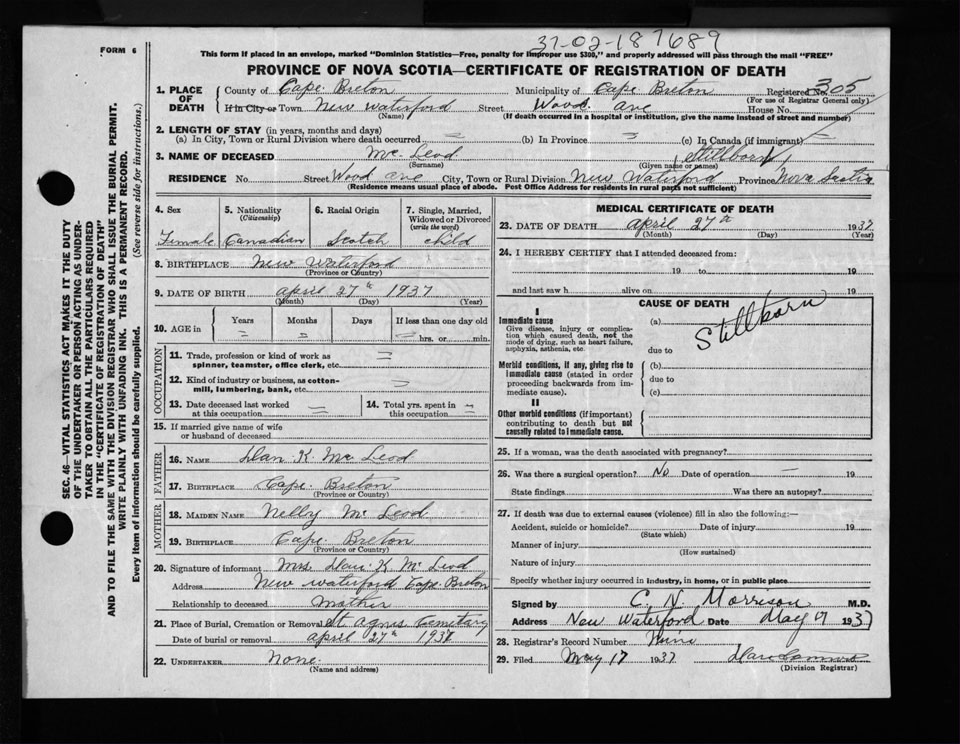 FORM 6
37-02-187689
This form if placed in an envelope, marked "Dominion Statistics—Free, penalty for improper use $300," and properly addressed will pass through the mail "FREE"
PROVINCE OF NOVA SCOTIA—CERTIFICATE OF REGISTRATION OF DEATH
1. PLACE OF DEATH
County of Cape Breton Municipality of Cape Breton Registered No. 305
(For use of Registrar General only)
If in City or Town New Waterford Street Wood ave House No.
(Name) (If death occurred in a hospital or institution, give the name instead of street and number)
2. LENGTH OF STAY (in years, months and days)
(a) In City, Town or Rural Division where death occurred = (b) In Province = (c) In Canada (if immigrant) =
3. NAME OF DECEASED Mc Leod (Stillborn)
(Surname) (Given name or names)
RESIDENCE No. Street Wood ave City, Town or Rural Division New Waterford Province Nova Scotia
(Residence means usual place of abode. Post Office Address for residents in rural parts not sufficient)
SEC. 46—VITAL STATISTICS ACT MAKES IT THE DUTY
OF THE UNDERTAKER OR PERSON ACTING AS UNDER-
TAKER TO OBTAIN ALL THE PARTICULARS REQUIRED
IN THE "CERTIFICATE OF REGISTRATION OF DEATH"
AND TO FILE THE SAME WITH THE DIVISION REGISTRAR WHO SHALL ISSUE THE BURIAL PERMIT.
WRITE PLAINLY WITH UNFADING INK. THIS IS A PERMANENT RECORD.
Every item of information should be carefully supplied. (See reverse side for instructions.)
4. Sex 5. Nationality (Citizenship) 6. Racial Origin 7. Single, Married, Widowed or Divorced (write the word)
Female Canadian Scotch child
8. BIRTHPLACE New Waterford
(Province or Country)
9. DATE OF BIRTH april 27th 1937
(Month) (Day) (Year)
10. AGE in Years Months Days If less than one day old
= = = hrs. or min.
OCCUPATION
11. Trade, profession or kind of work as spinner, teamster, office clerk, etc. =
12. Kind of industry or business, as cotton-mill, lumbering, bank, etc. =
13. Date deceased last worked at this occupation = 14. Total yrs. spent in this occupation =
15. If married give name of wife or husband of deceased
FATHER
16. NAME Dan K. Mc Leod
17. BIRTHPLACE Cape Breton
(Province or Country)
MOTHER
18. MAIDEN NAME Nelly Mc Leod
19. BIRTHPLACE Cape Breton
(Province or Country)
20. Signature of informant Mrs. Dan K Mc Leod
Address New Waterford Cape Breton
Relationship to deceased Mother
21. Place of Burial, Cremation or Removal St Agnis Cemitary
Date of burial or removal april 27th 1937
22. UNDERTAKER none.
(Name and address)
MEDICAL CERTIFICATE OF DEATH
23. DATE OF DEATH april 27th 1937
(Month) (Day) (Year)
24. I HEREBY CERTIFY that I attended deceased from:
19 to 19
and last saw h alive on 19
CAUSE OF DEATH
I
Immediate cause
Give disease, injury or complication which caused death, not the mode of dying, such as heart failure, asphyxia, asthenia, etc.
(a) Stillborn
due to
Morbid conditions, if any, giving rise to immediate cause (stated in order proceeding backwards from immediate cause).
(b)
due to
(c)
II
Other morbid conditions (if important) contributing to death but not causally related to immediate cause.
25. If a woman, was the death associated with pregnancy?
26. Was there a surgical operation? No Date of operation — 19
State findings Was there an autopsy?
27. If death was due to external causes (violence) fill in also the following:—
Accident, suicide or homicide? Date of injury 19
(State which)
Manner of injury
(How sustained)
Nature of injury
Specify whether injury occurred in industry, in home, or in public place
Signed by C. N. Morrison M.D.
Address New Waterford Date May 1937
28. Registrar's Record Number Nine
29. Filed May 17 1937
(Division Registrar)